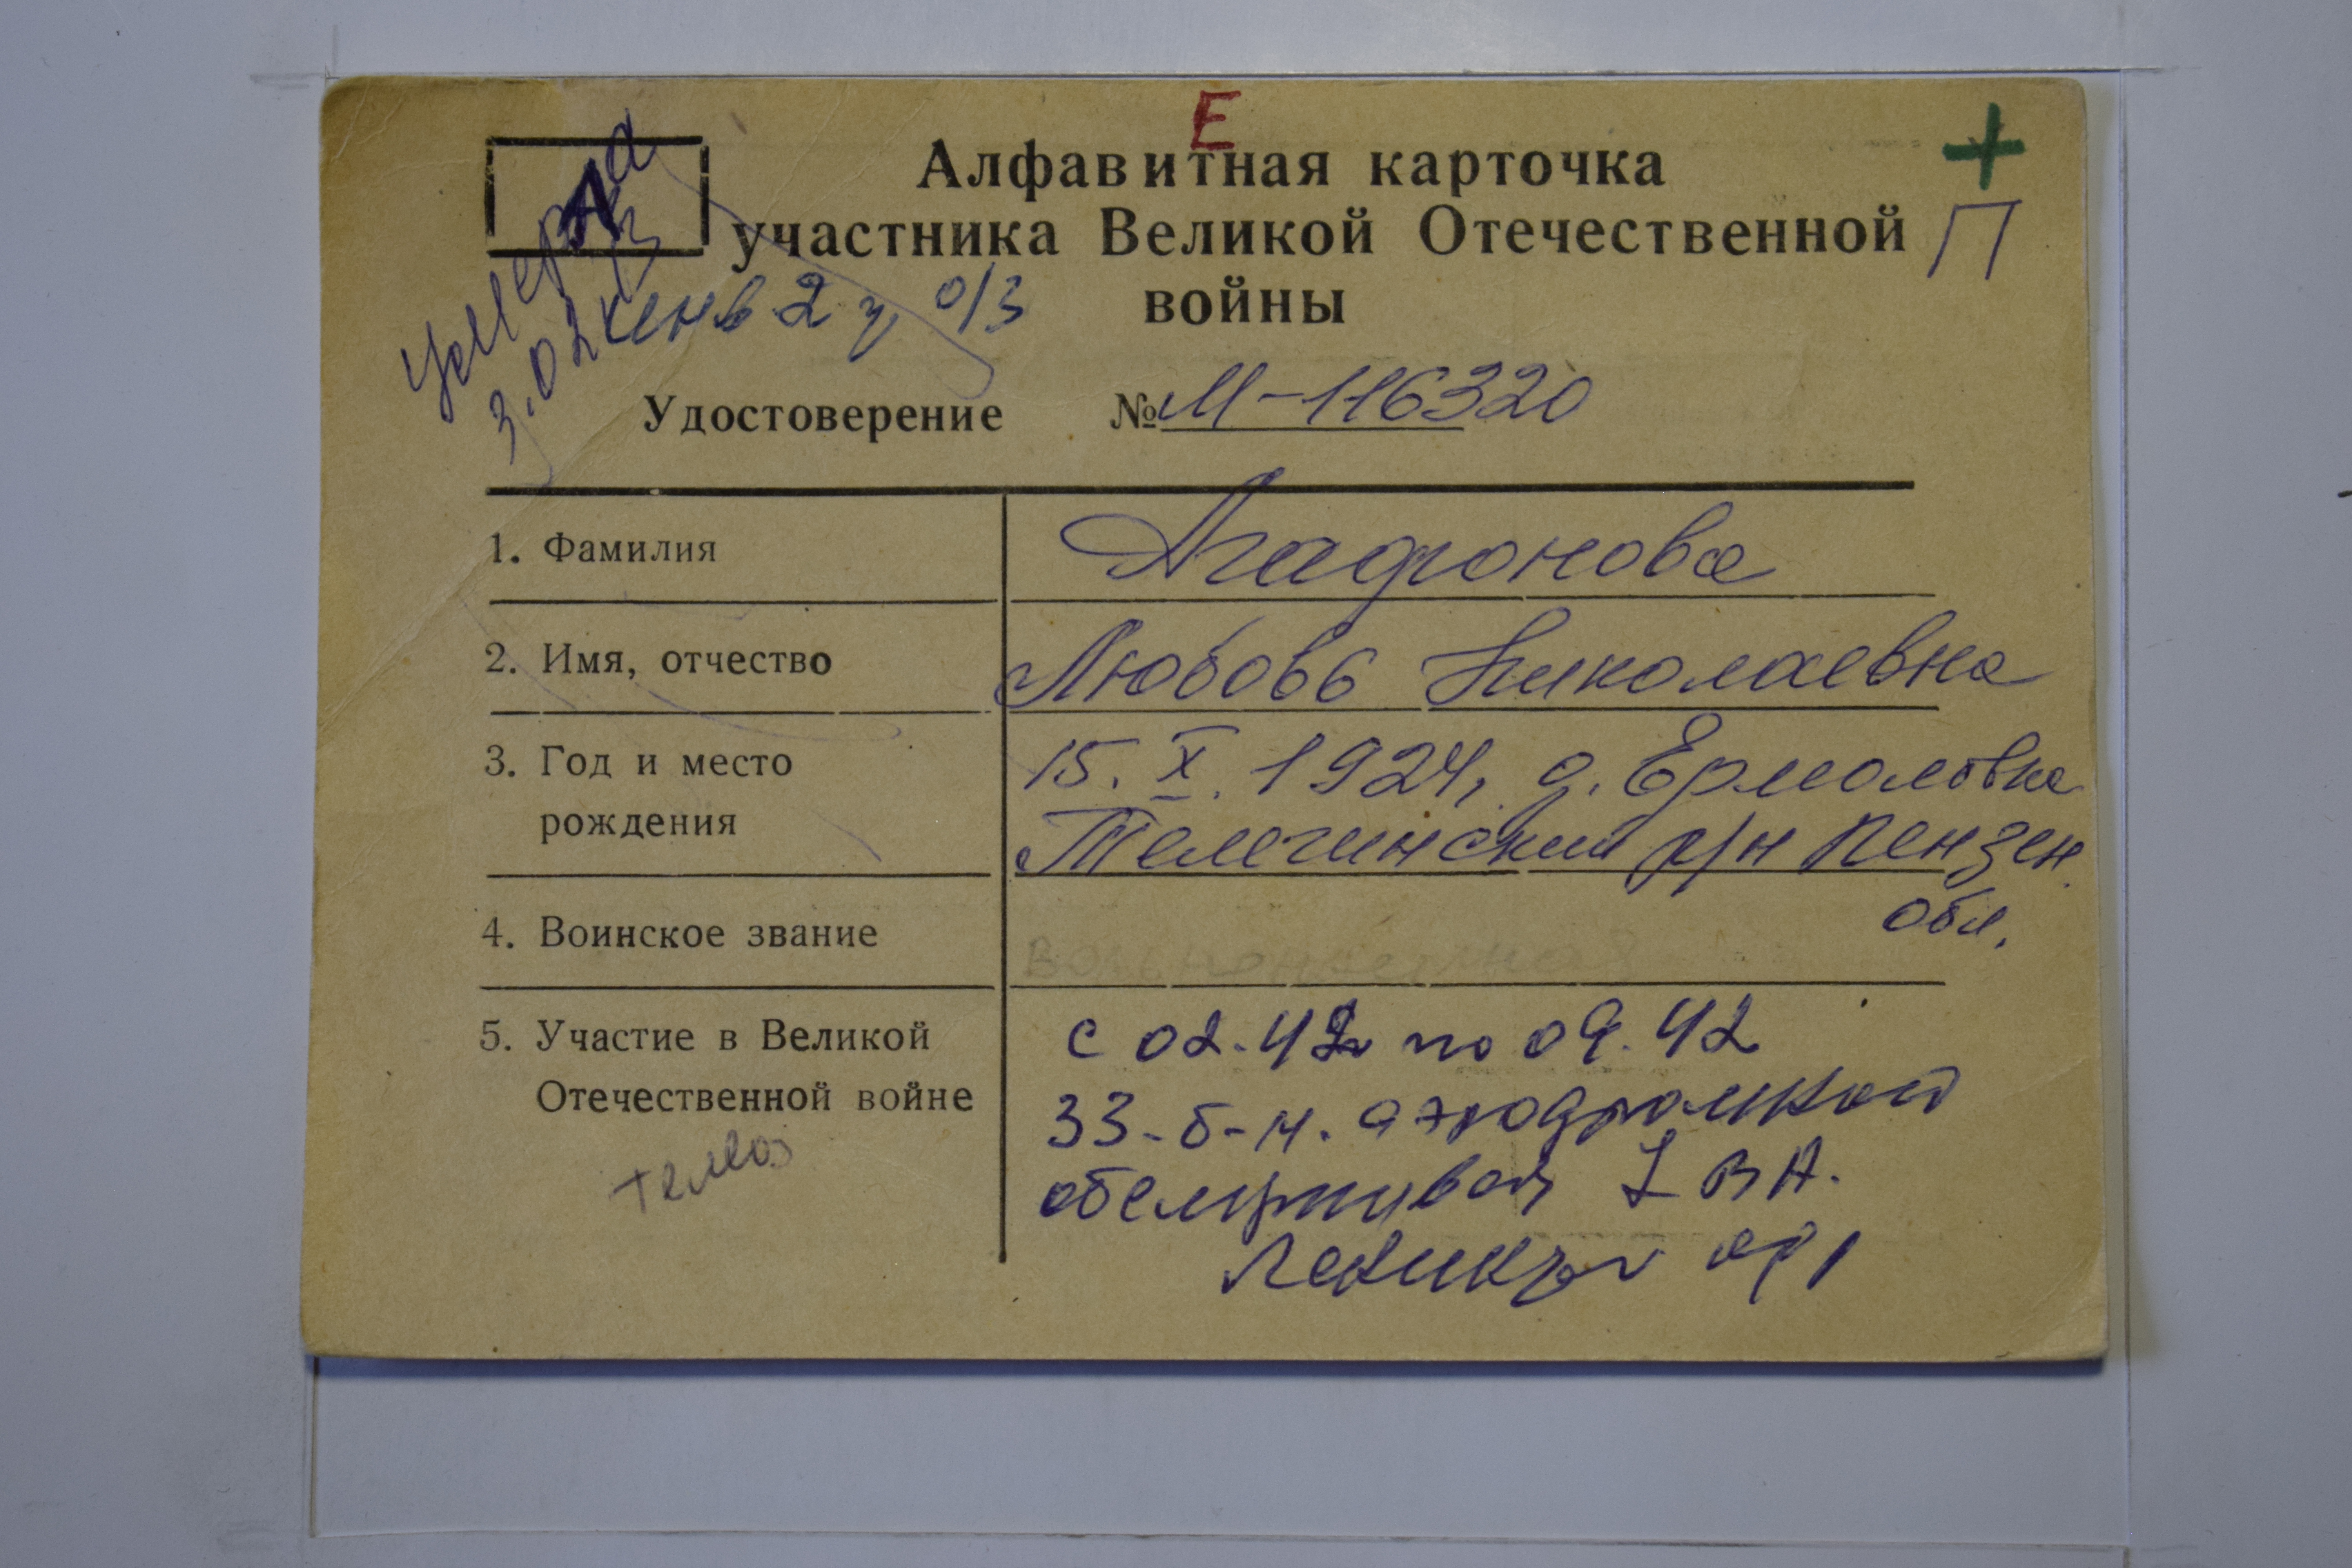 Е
+
А
Алфавитная карточка
участника Великой Отечественной
войны
П
Умерла
3.02
жен в 2 гр о/з
Удостоверение № М-116320
1. Фамилия Агафонова
2. Имя, отчество Любовь Николаевна
3. Год и место 15.X.1924, д. Ермоловка
рождения Телегинский р/н Пензен.
обл.
4. Воинское звание вольнонаемная
5. Участие в Великой с 02.42 по 09.42
Отечественной войне 33-б-н. аэродромной
обслужив 1 ВА.